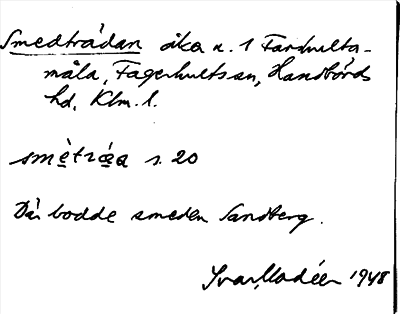 Smedträdan åka n. 1 Farshulta-
måla, Fagerhults sn, Handbörds
hd, Klm. l.
smètrǽa s. 20
Där bodde smeden Sandberg.
Ivar Modéer 1948